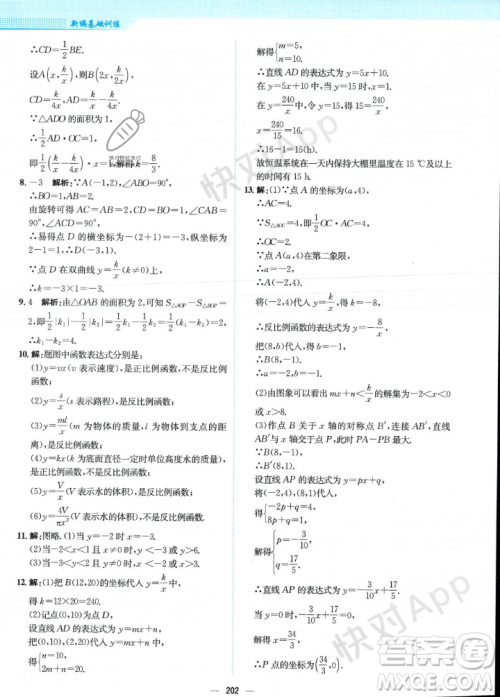 新编基础训练
∴CD=1/2 BE.
设A(x, k/x), 则B(2x, k/2x),
CD=k/4x, AD=k/x-k/4x.
∵△ADO的面积为1,
∴1/2 AD·OC=1,
8. -3 解析:∵A(-1,2),∠ABO=90°,
∴BO=1,AB=2.
由旋转可得AC=AB=2,CD=BO=1,∠CAB=90°,∠ACD=90°.
∴易得点D的横坐标为-(2+1)=-3,纵坐标为2-1=1.
∵点D在双曲线y=k/x(k≠0)上,
∴k=-3×1=-3.
9. 4 解析:由△OAB的面积为2,可知S△AOP-S△BOP=2,即1/2|k₁|-1/2|k₂|=2,
∴k₁-k₂=4.
10. 解:题图中函数表达式分别是:
(1)y=vx(v表示速度),是正比例函数,不是反比例函数;
(2)y=s/x(s表示路程),是反比例函数;
(3)y=ml/x(m为物体的质量,l为物体到支点的距离),是反比例函数;
(4)y=kx(k为底面直径一定时单位高度水的质量),是正比例函数,不是反比例函数;
(5)y=V/x(V表示水的体积),是反比例函数;
(6)y=4V/πx²(V表示水的体积),不是反比例函数.
11. 解:图略.(1)当x=-2时,y=-3.
(2)当-2<x<1且x≠0时,
(3)当-3<y<2且y≠0时,
12. 解:(1)把B(12,20)的坐标代入y=k/x中,
得k=12×20=240.
(2)记点(0,10)为点D,
设直线AD的表达式为y=mx+n.
把(0,10),(2,20)代入y=mx+n中,
得{n=10, 2m+n=20,
解得{m=5, n=10,
∴直线AD的表达式为y=5x+10.
在y=5x+10中,
∴16-1=15(h).
故恒温系统在一天内保持大棚里温度为15℃及以上的时间有15 h.
13. 解:(1)∵点A的坐标为(a,4),
∴OC=4.
∵S△AOC=4,
∵点A(a,4)在第二象限,
∴a=-2,
∴A(-2,4).
将A(-2,4)代入y=k/x得k=-8,
∴反比例函数的表达式为y=-8/x.
把(8,b)代入得b=-1,
∴B(8,-1).
(2)由图象可以看出mx+n<k/x的解集为-2<x<0或x>8.
(3)作点B关于x轴的对称点B′,连接AB′,直线AB′与x轴交于点P,此时PA-PB最大.
∵B(8,-1),
∴B′(8,1).
设直线AP的表达式为y=px+q,
将(-2,4),(8,1)代入得
{-2p+q=4, 8p+q=1,
解得{p=-3/10, q=17/5,
∴直线AP的表达式为y=-3/10x+17/5,
当y=0时,
∴P点坐标为(34/3, 0).
202
快对App